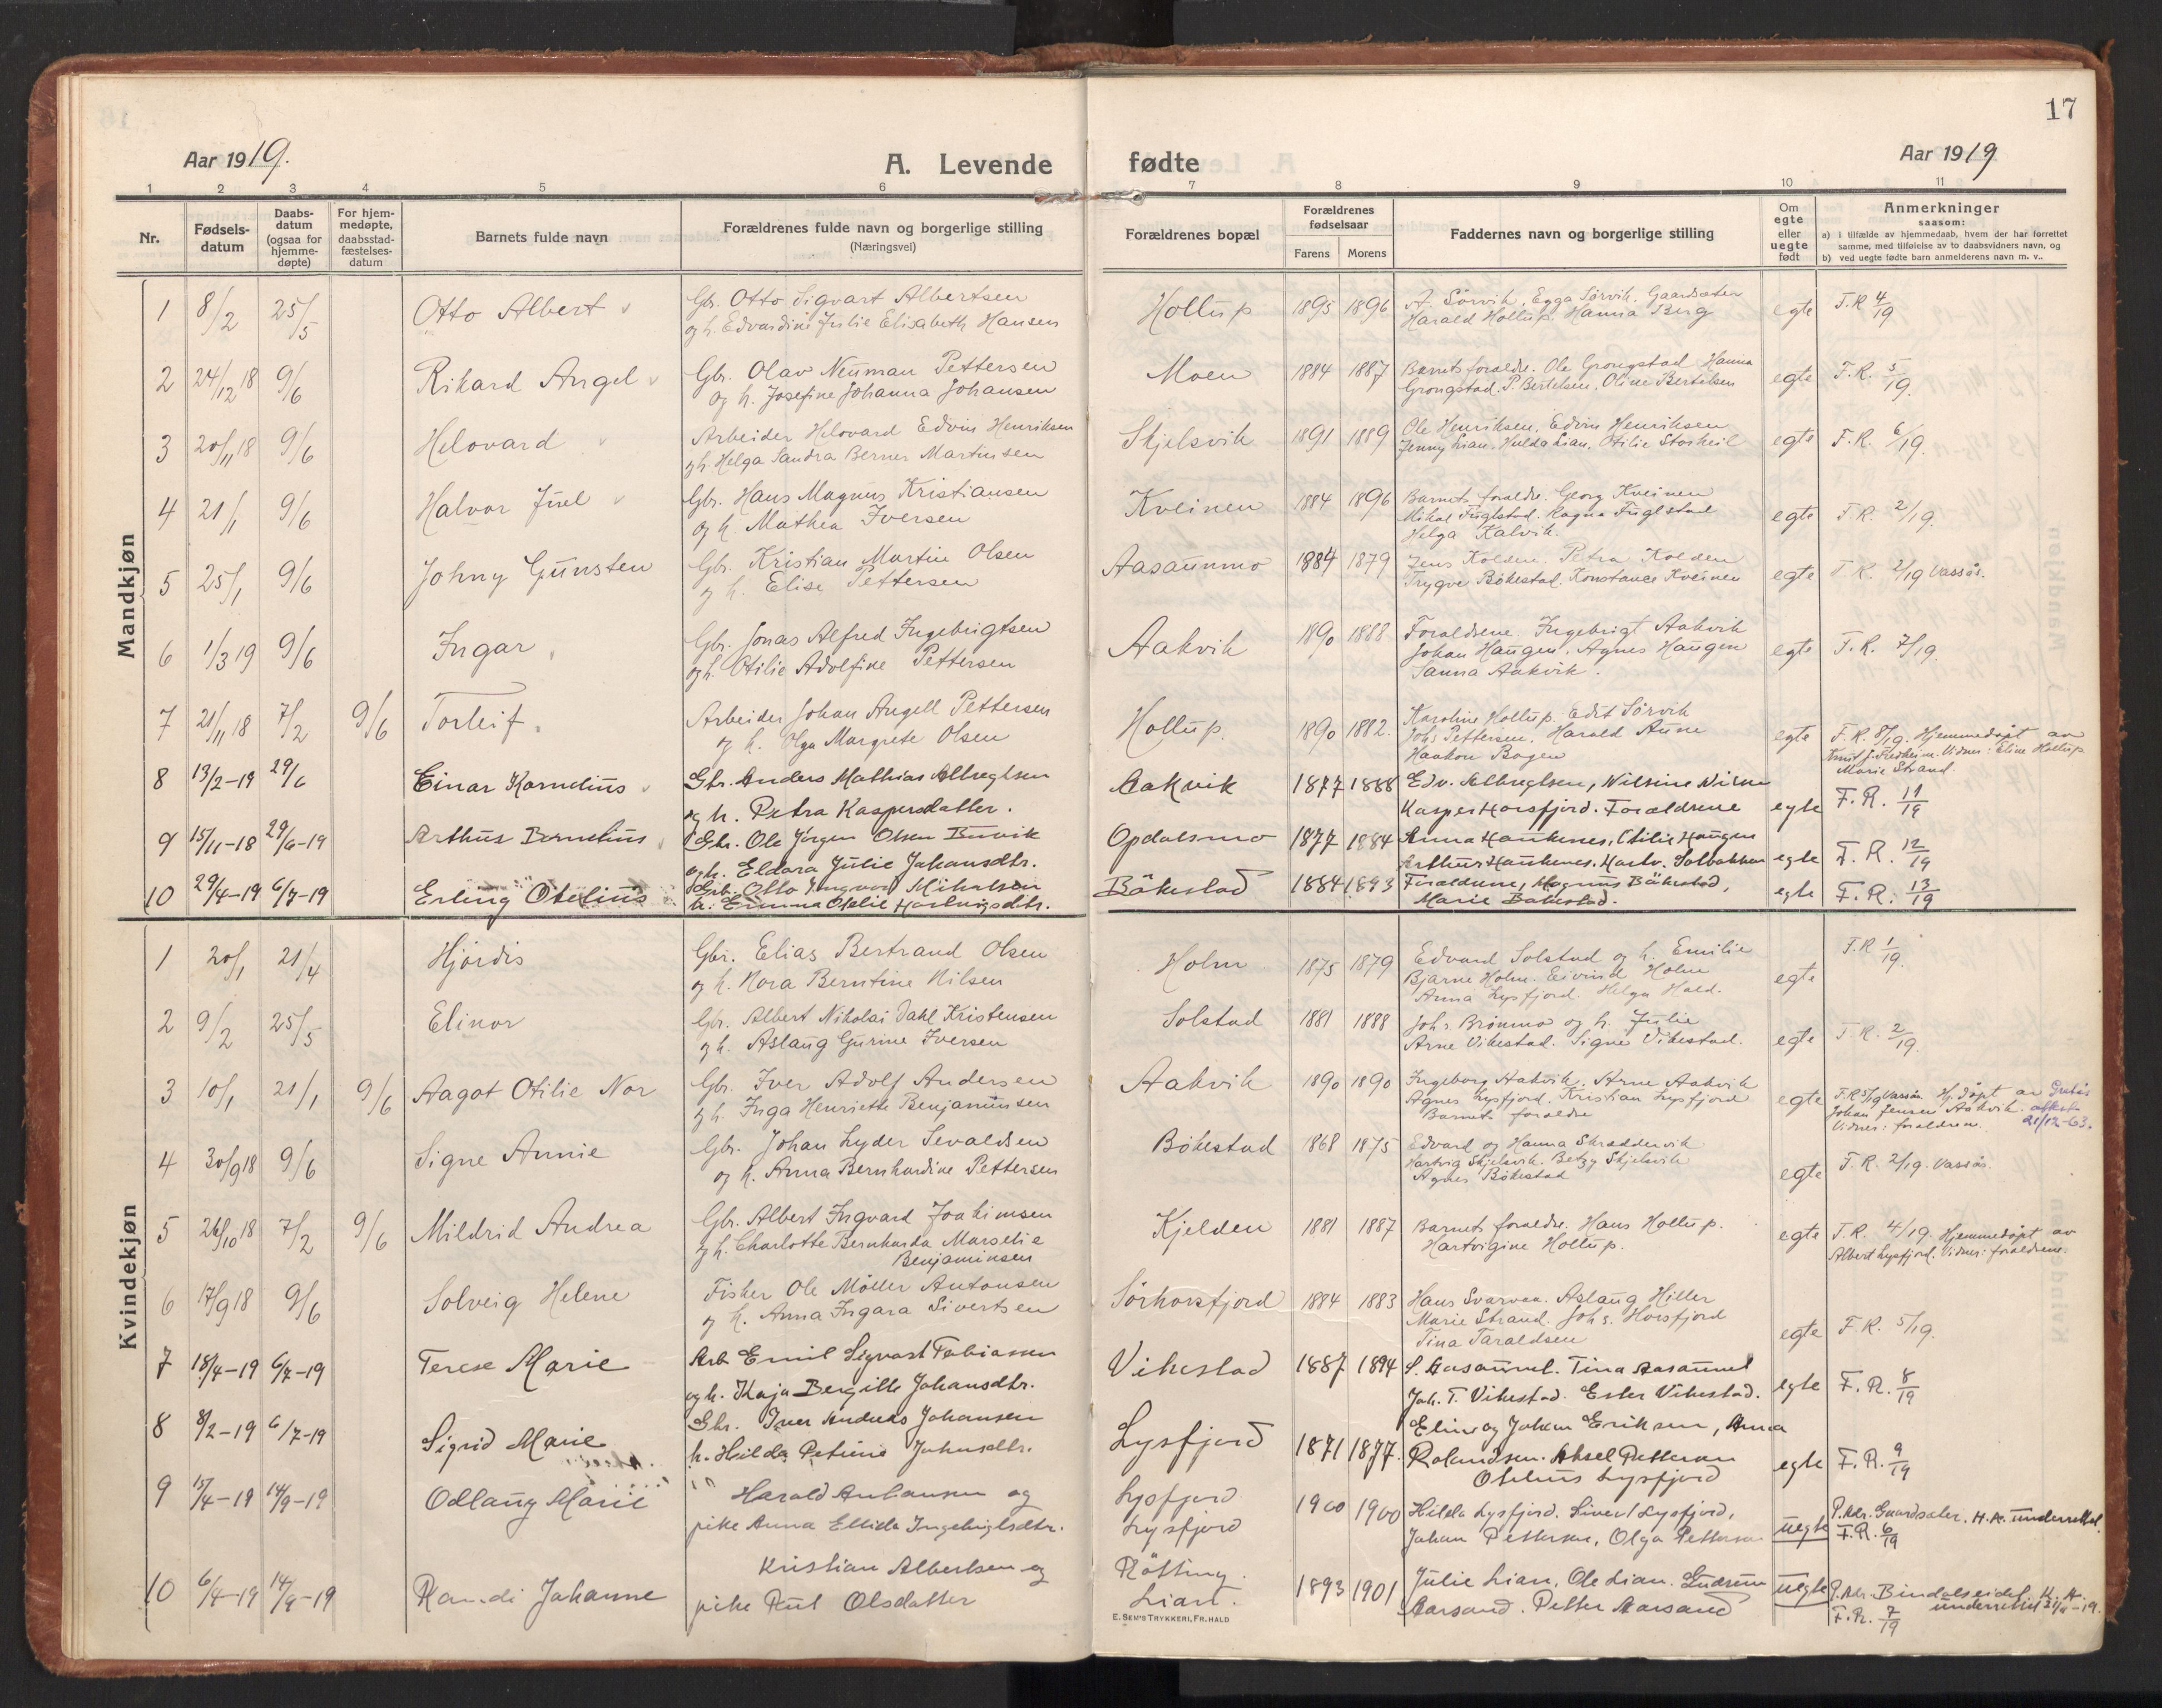 17
Aar 1919.
A. Levende
fødte
Aar 1919
1 2 3 4 5 6 7 8 9 10 11
Nr.
Fødsels-
datum
Daabs-
datum
(ogsaa for
hjemme-
døpte)
For hjem-
medøpte,
daabsstad-
fæstelses-
datum
Barnets fulde navn
Forældrenes fulde navn og borgerlige stilling
(Næringsvei)
Forældrenes bopæl
Forældrenes
fødselsaar
Farens Morens
Faddernes navn og borgerlige stilling
Om
egte
eller
uegte
født
Anmerkninger
saasom:
a) i tilfælde av hjemmedaab, hvem der har forrettet
samme, med tilføielse av to daabsvidners navn, og
b) ved uegte fødte barn anmelderens navn m. v..
Mandkjøn
1 8/2 25/5 Otto Albert
Gbr. Otto Sigvart Albertsen
og h. Edvardine Julie Elisabeth Hansen
Hollup 1895 1896
A. Sörvik. Egga Sörvik. Gaardsæter
Harald Hollup. Hanna Berg
egte F.R 4/19
2 24/12 18 9/6 Rikard Angel
Gbr. Olav Neuman Pettersen
og h. Josefine Johanna Johansen
Moen 1884 1887
Barnets foraldre. Ole Grongstad Hanna
Grongstad. P. Bertelsen, Oline Bertelsen
egte F.R. 5/19.
3 20/11 18 9/6 Helovard
Arbeider Helovard Edvin Henriksen
og h. Helga Sandra Berner Martinsen
Skjelsvik 1891 1889
Ole Henriksen, Edvin Henriksen
Jenny Lian. Hulda Lian. Otilie Storheil
egte F.R. 6/19.
4 21/1 9/6 Halvor Juel
Gbr. Hans Magnus Kristiansen
og h. Mathea Iversen
Kveinen 1884 1896
Barnets foraldre. Georg Kveinen
Mikal Fuglstad. Ragna Fuglstad
Helga Kalvik.
egte F.R. 2/19.
5 25/1 9/6 Johny Gunsten
Gbr. Kristian Martin Olsen
og h. Elise Pettersen
Aasaunmo 1884 1879
Jens Kolden. Petra Kolden
Trygve Bökestad. Konstance Kveinen
egte F.R. 2/19 Vassås.
6 1/3 19 9/6 Ingar
Gbr. Jonas Alfred Ingebrigtsen
og h. Otilie Adolfine Pettersen
Aakvik 1890 1888
Foraldrene. Ingebrigt Aakvik
Johan Haugen. Agnes Haugen
Sanna Aakvik.
egte F.R. 7/19.
7 21/11 18 7/2 9/6 Torleif.
Arbeider Johan Angell Pettersen
og h. Olga Margrete Olsen
Hollup. 1890 1882.
Karoline Hollup. Edit Sörvik
Johs Pettersen. Harald Aune
Haakon Bogen
egte F.R. 8/19. Hjemmedöpt av
Knut J. Fredheim. Vidner: Eline Hollup
Marie Strand.
8 13/2-19 29/6 Einar Kornelius
Gbr. Anders Mathias Albregtsen
og h. Petra Kaspersdatter.
Aakvik 1877 1888
Edv. Albregtsen, Wilsine Wilsen
Kasper Horsfjord. Foraldrene
egte F.R. 11/19
9 15/11-18 29/6-19 Arthur Berntius
Gbr. Ole Jörgen Olsen Buvik
og h. Eldara Julie Johansdtr.
Opdalsmo 1877 1884
Anna Haukenes, Otilie Haugen
Arthur Haukenes. Hartv. Solbakken
egte F.R. 12/19
10 29/4-19 6/7-19 Erling Otelius
Gbr. Otto Ingvar Mikalsen
h. Emma Otelie Hartvigsdtr.
Bökestad 1884 1893
Foraldrene, Magnus Bökestad,
Marie Bökestad.
egte F.R. 13/19
Kvindekjøn
1 20/1 21/4 Hjördis
Gbr. Elias Bertrand Olsen
og h. Nora Berntine Nilsen
Holm 1875 1879
Edvard Solstad og h. Emilie
Bjarne Holm. Eivind Holm
Anna Lysfjord. Helga Hald.
egte F.R 1/19.
2 9/2 25/5 Elinor
Gbr. Albert Nikolai Dahl Kristensen
og h. Aslaug Gurine Iversen
Solstad 1881 1888
Johs Brönmo og h. Julie
Arne Vikestad. Signe Vikestad.
egte F.R. 2/19.
3 10/1 21/1 9/6 Aagot Otilie Nor
Gbr. Iver Adolf Andersen
og h. Inga Henriette Benjaminsen
Aakvik 1890 1890
Ingeborg Aakvik. Arne Aakvik
Agnes Lysfjord. Kristian Lysfjord
Barnets foraldre
egte F.R 5/19 Vassås. Hj. döpt av
Johan Jensen Aakvik. attest
Vidner: foraldrene. 21/12-63.
4 30/9 18 9/6 Signe Annie
Gbr. Johan Lyder Sevaldsen
og h. Anna Bernhardine Pettersen
Bökestad 1868 1875
Edvard og Hanna Skraddervik
Hartvig Skjelsvik. Betzy Skjelsvik
Agnes Bökestad
egte F.R. 2/19. Vassås.
5 26/10 18 7/2 9/6 Mildrid Andrea
Gbr. Albert Ingvard Joakimsen
og h. Charlotte Bernharda Marselie
Benjaminsen
Kjelden 1881 1887
Barnets foraldre. Hans Hollup.
Hartvigine Hollup.
egte F.R. 4/19. Hjemmedöpt av
Albert Lysfjord. Vidner: foraldrene.
6 17/9 18 9/6 Solveig Helene
Fisker Ole Möller Antonsen
og h. Anna Ingara Sivertsen
Sörhorsfjord 1884 1883
Hans Svarvea. Aslaug Hiller
Marie Strand. Johs. Horsfjord
Tina Taraldsen
egte F.R. 5/19.
7 18/4-19 6/7-19 Terese Marie
Arb Emil Sigvart Fabiansen
og h. Kaja Bergitte Johansdtr.
Vikestad 1887 1894
S. Aasaunet. Tina Aasaunet
Joh. T. Vikestad. Ester Vikestad.
egte F.R. 8/19
8 8/2-19 6/7-19 Sigrid Marie
Gbr. Iver Andreas Johansen
h. Hilda Petrine Johnsdtr.
Lysfjord 1871 1877.
Eline og Johan Eriksen, Anna
Rolandsen. Aksel Pettersen
Otelius Lysfjord
egte F.R. 9/19
9 15/4-19 14/9-19 Odlaug Marie
Harald Anhansen og
pike Anna Ellida Ingebrigtsdtr.
Lysfjord
Lysfjord
1900 1900
Hilda Lysfjord. Sivert Lysfjord,
Johan Pettersen, Olga Pettersen
uegte P. Adr. Gaardsæter. H.A. underrettet.
F.R. 6/19
10 6/4-19 14/9-19 Randi Johanne
Kristian Albertsen og
pike Rut Olsdatter
Rötting.
Lian.
1893 1901
Julie Lian, Ole Lian. Gudrun
Aarsand. Petter Aarsand
uegte P. Adr. Bindalseidet. H.A.
underrettet
F.R. 7/19
E. SEM'S TRYKKERI, FR.HALD